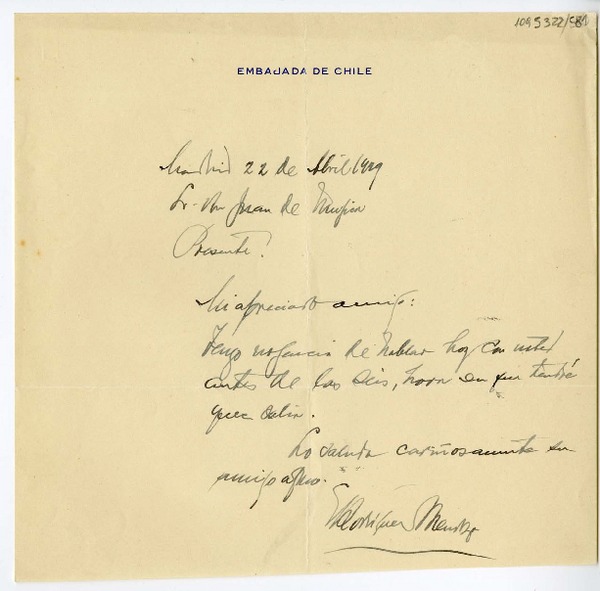 1095322/981
EMBAJADA DE CHILE
Madrid 22 de Abril 1929
Sr. Dn Juan de Mujica
Presente.
Mi apreciado amigo:
Tengo urgencia de hablar hoy con usted
antes de las seis, hora en que tendré
que salir.
Lo saluda cariñosamente su
amigo affmo.
E Rodríguez Mendoza